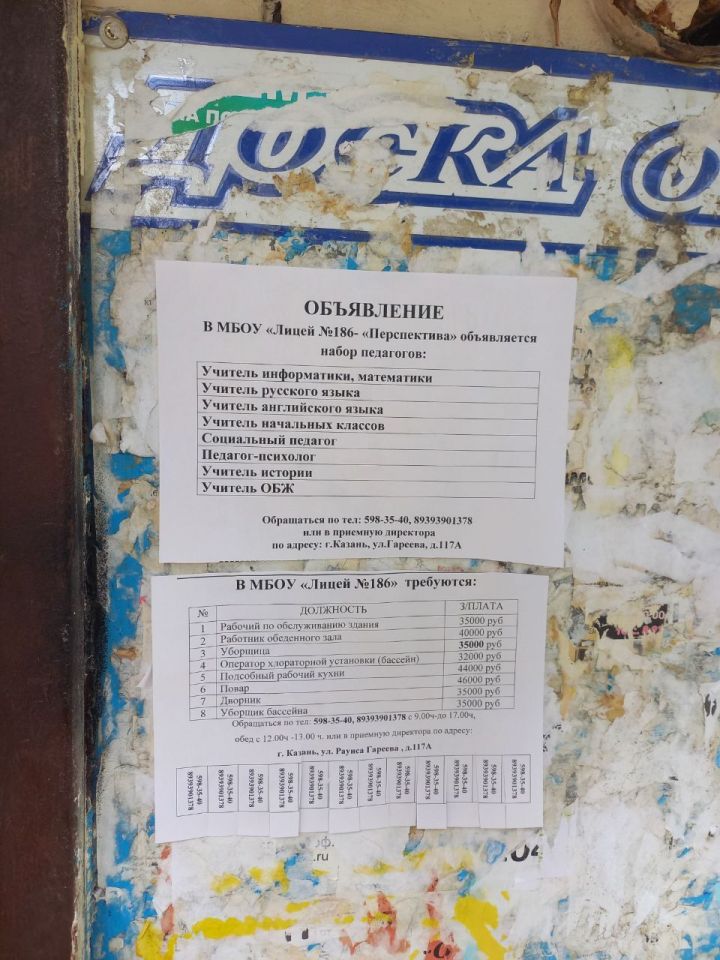 А ПО
Доска о
ОБЪЯВЛЕНИЕ
В МБОУ «Лицей №186- «Перспектива» объявляется
набор педагогов:
Учитель информатики, математики
Учитель русского языка
Учитель английского языка
Учитель начальных классов
Социальный педагог
Педагог-психолог
Учитель истории
Учитель ОБЖ
Обращаться по тел: 598-35-40, 89393901378
или в приемную директора
по адресу: г.Казань, ул.Гареева, д.117А
В МБОУ «Лицей №186» требуются:
№ ДОЛЖНОСТЬ З/ПЛАТА
1 Рабочий по обслуживанию здания 35000 руб
2 Работник обеденного зала 40000 руб
3 Уборщица 35000 руб
4 Оператор хлораторной установки (бассейн) 32000 руб
5 Подсобный рабочий кухни 44000 руб
6 Повар 46000 руб
7 Дворник 35000 руб
8 Уборщик бассейна 35000 руб
Обращаться по тел: 598-35-40, 89393901378 с 9.00ч-до 17.00ч,
обед с 12.00ч -13.00 ч. или в приемную директора по адресу:
г. Казань, ул. Рауиса Гареева , д.117А
598-35-40 89393901378
598-35-40 89393901378
598-35-40 89393901378
598-35-40 89393901378
598-35-40 89393901378
598-35-40 89393901378
598-35-40 89393901378
598-35-40 89393901378
598-35-40 89393901378
598-35-40 89393901378
598-35-40 89393901378
598-35-40 89393901378
.ru